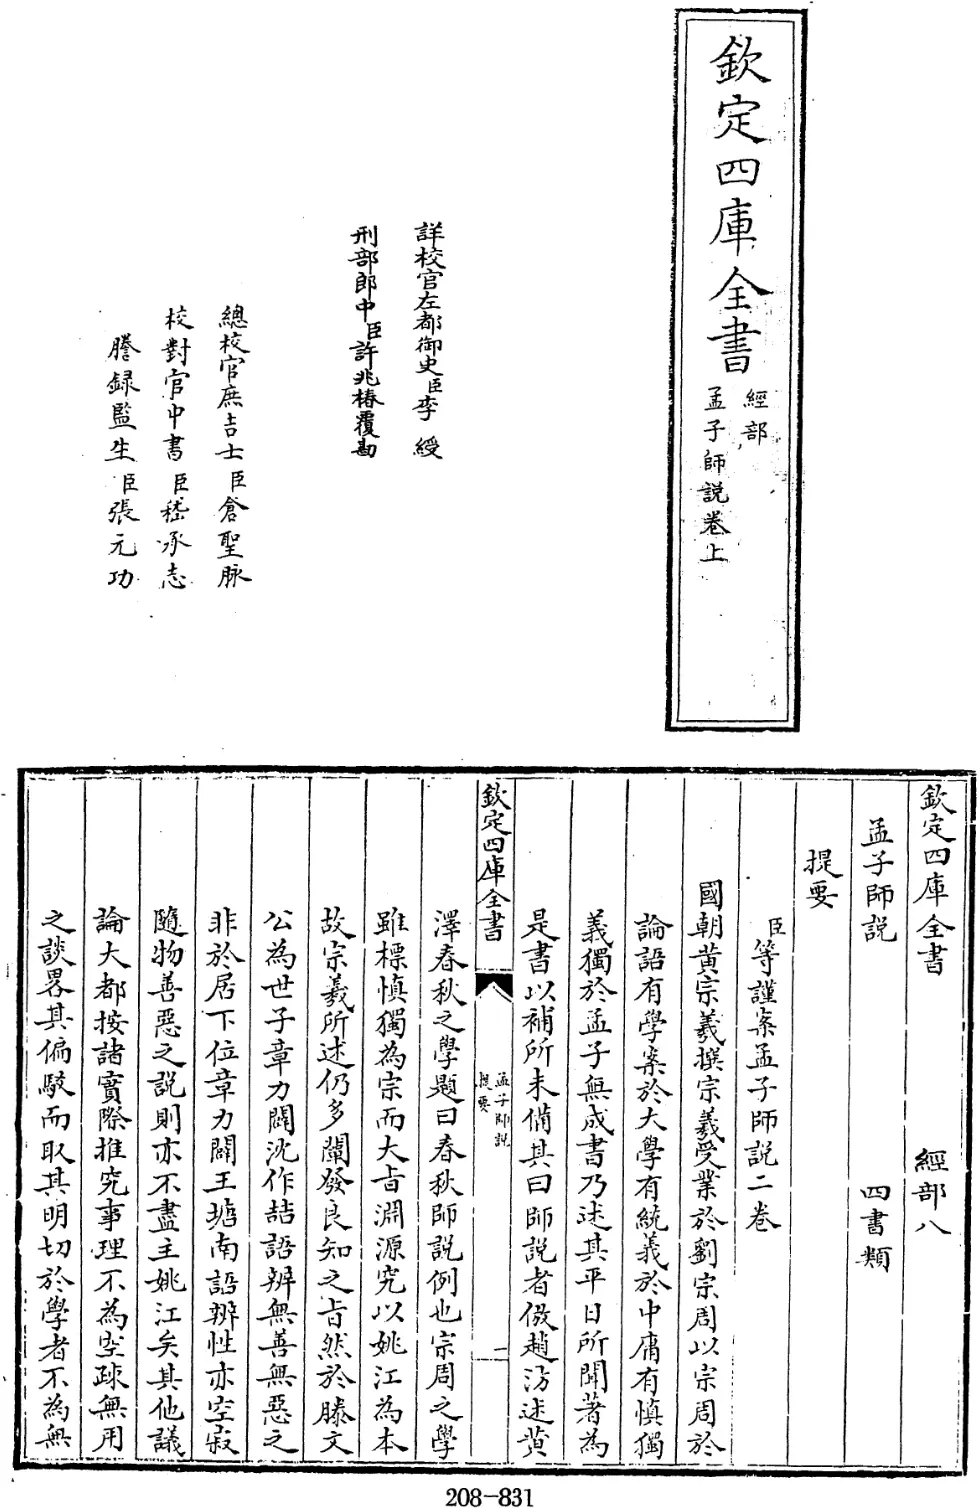 欽定四庫全書
經部
孟子師説卷上
詳校官左都御史臣李綬
刑部郎中臣許兆椿覆勘
總校官庶吉士臣倉聖脉
校對官中書臣嵇承志
謄録監生臣張元功
欽定四庫全書 經部八
孟子師説 四書類
提要
臣等謹案孟子師説二卷
國朝黄宗羲撰宗羲受業於劉宗周以宗周於
論語有學案於大學有統義於中庸有慎獨
義獨於孟子無成書乃述其平日所聞著為
是書以補所未備其曰師説者倣趙汸述黄
欽定四庫全書
孟子師説
提要
一
澤春秋之學題曰春秋師説例也宗周之學
雖標慎獨為宗而大㫖淵源究以姚江為本
故宗羲所述仍多闡發良知之㫖然於滕文
公為世子章力闢沈作喆語辨無善無惡之
非於居下位章力闢王塘南語辨性亦空寂
隨物善惡之説則亦不盡主姚江矣其他議
論大都按諸實際推究事理不為空疎無用
之談畧其偏駁而取其明切於學者不為無
208-831